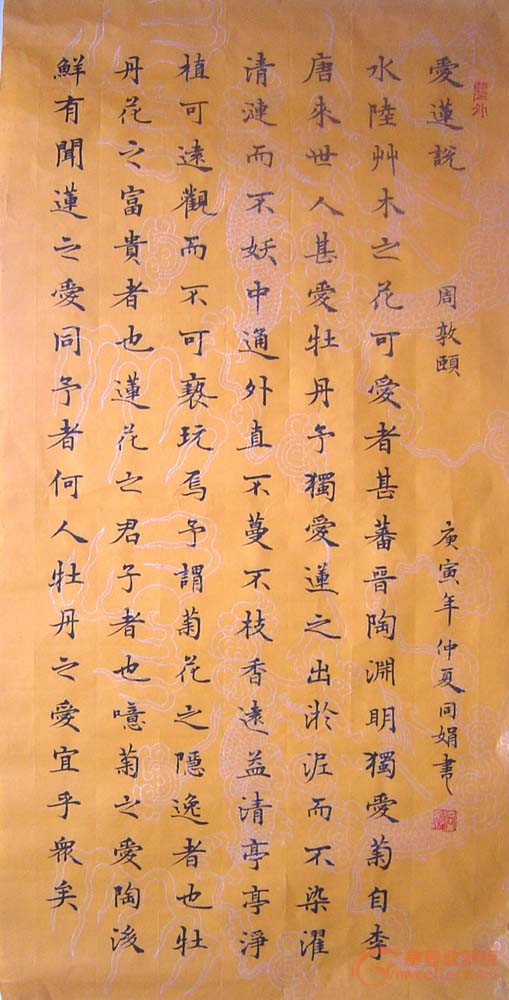 愛蓮說 周敦頤 庚寅年仲夏同娟書
水陸艸木之花可愛者甚蕃晉陶淵明獨愛菊自李
唐來世人甚愛牡丹予獨愛蓮之出淤泥而不染濯
清漣而不妖中通外直不蔓不枝香遠益清亭亭淨
植可遠觀而不可褻玩焉予謂菊花之隱逸者也牡
丹花之富貴者也蓮花之君子者也噫菊之愛陶後
鮮有聞蓮之愛同予者何人牡丹之愛宜乎衆矣